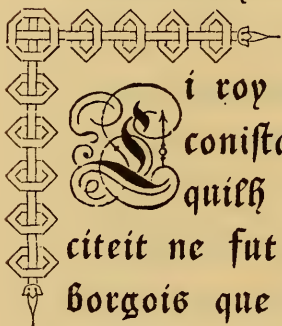 Li roy
coniſta
quilh
citeit ne fut
borgois que